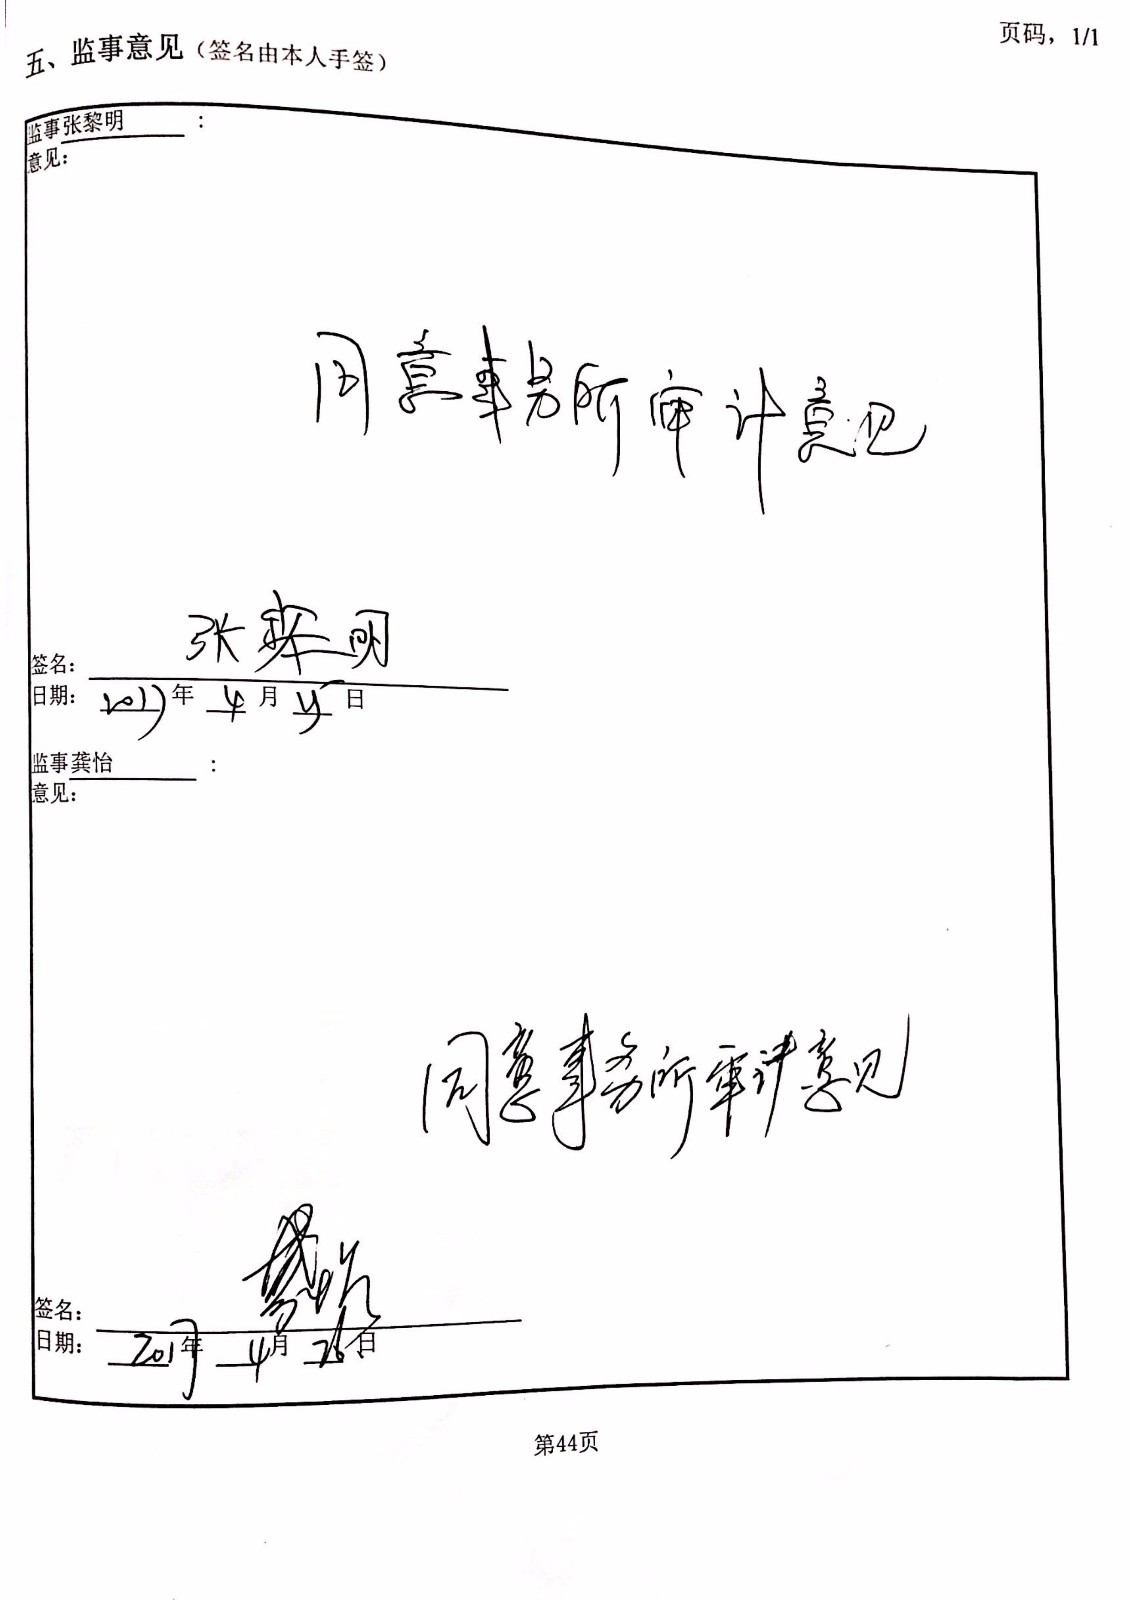 页码，1/1
五、监事意见（签名由本人手签）
监事张黎明：
意见：
同意事务所审计意见
签名：张黎明
日期：2017年4月 日
监事龚怡：
意见：
同意事务所审计意见
签名：龚怡
日期：2017年4月26日
第44页